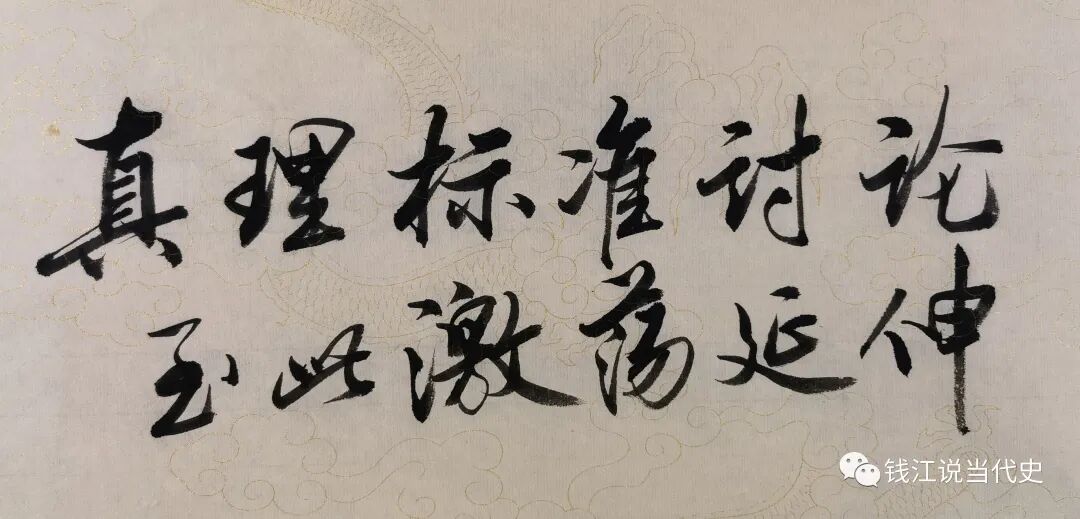 真理标准讨论
至此激荡延伸
钱江说当代史